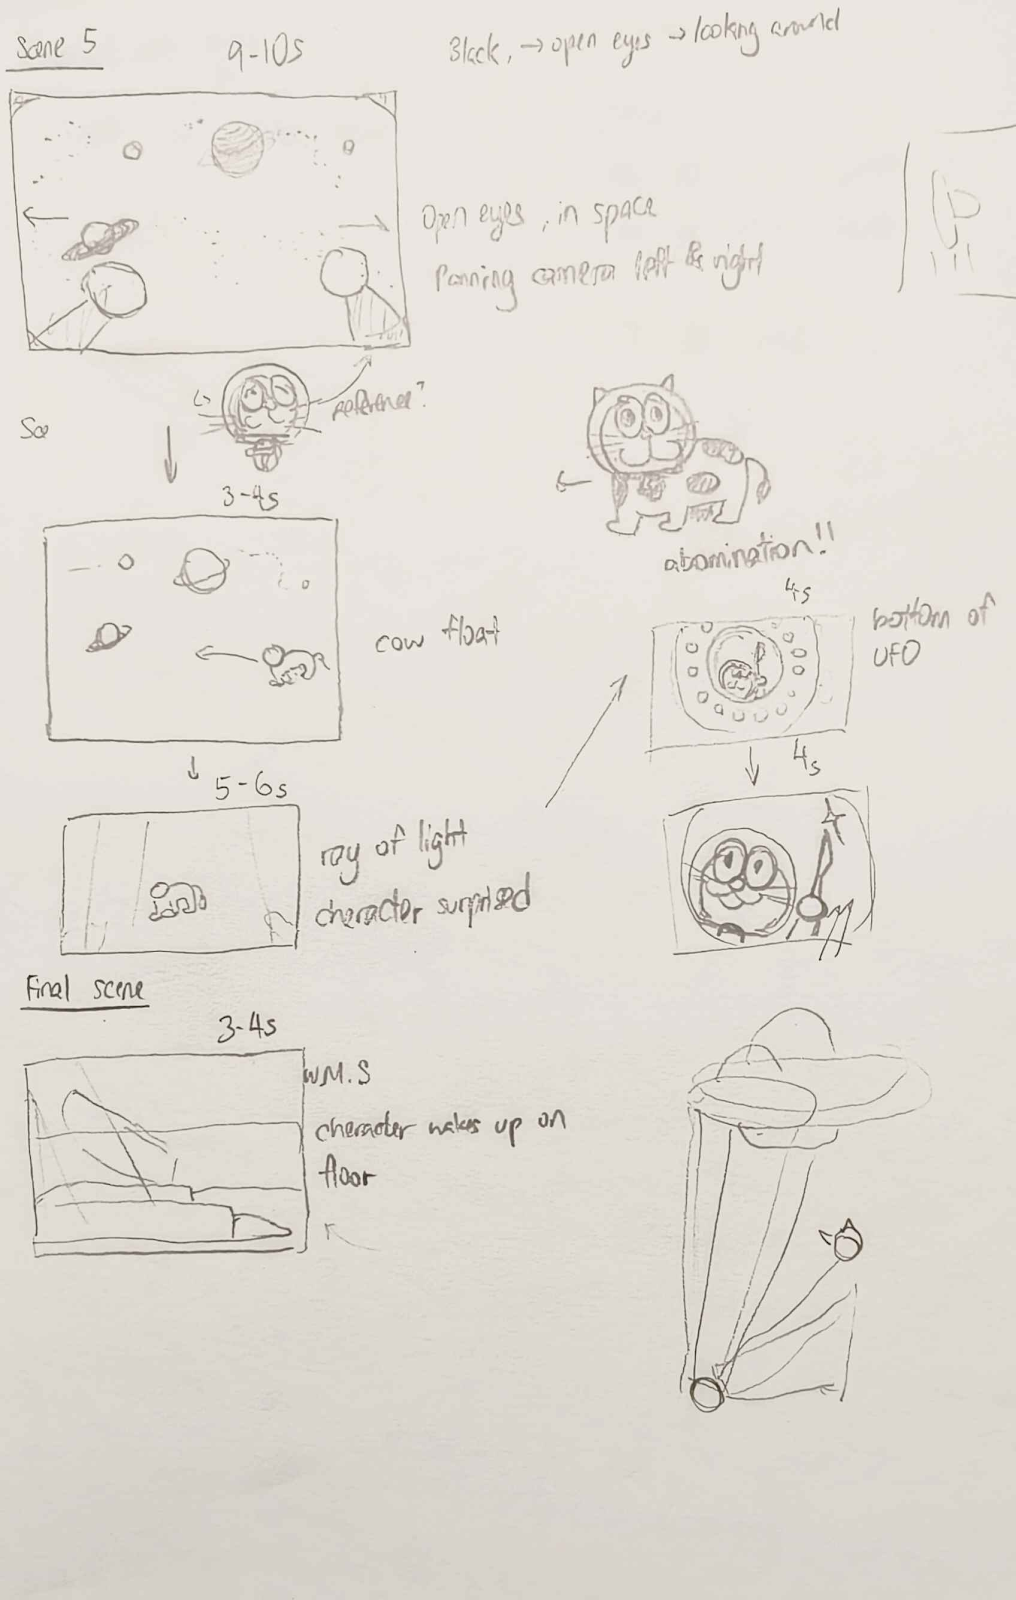 Scene 5
9-10s
Black, → open eyes → looking around
Open eyes, in space
Panning camera left & right
reference?
Sce
3-4s
abomination!!
4s
bottom of
UFO
cow float
4s
5-6s
ray of light
character surprised
Final scene
3-4s
W M.S
character wakes up on
floor